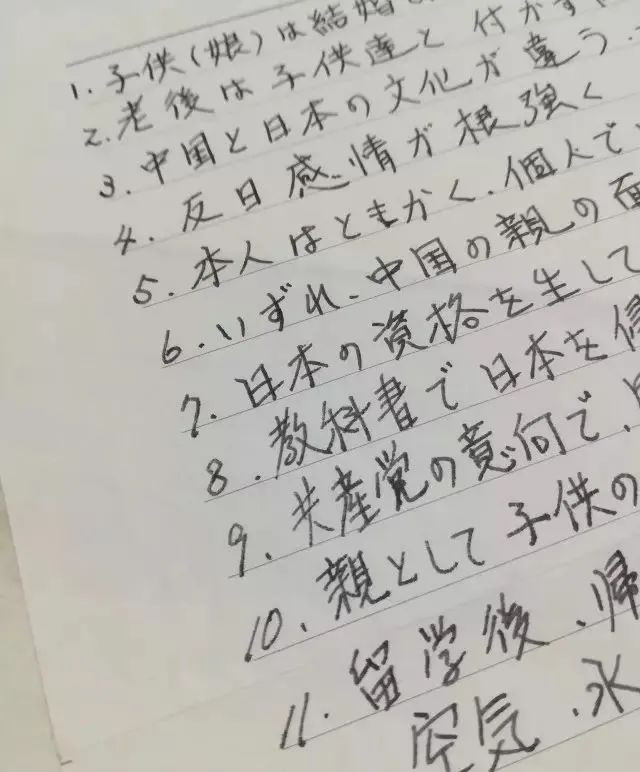 1. 子供(娘)は結婚
2. 老後は子供達と付かず
3. 中国と日本の文化が違う.
4. 反日感情が根強く
5. 本人はともかく、個人で
6. いずれ、中国の親の面
7. 日本の資格を生して
8. 教科書で日本を侵
9. 共産党の意向で、
10. 親として子供の
11. 留学後、帰
空気、水